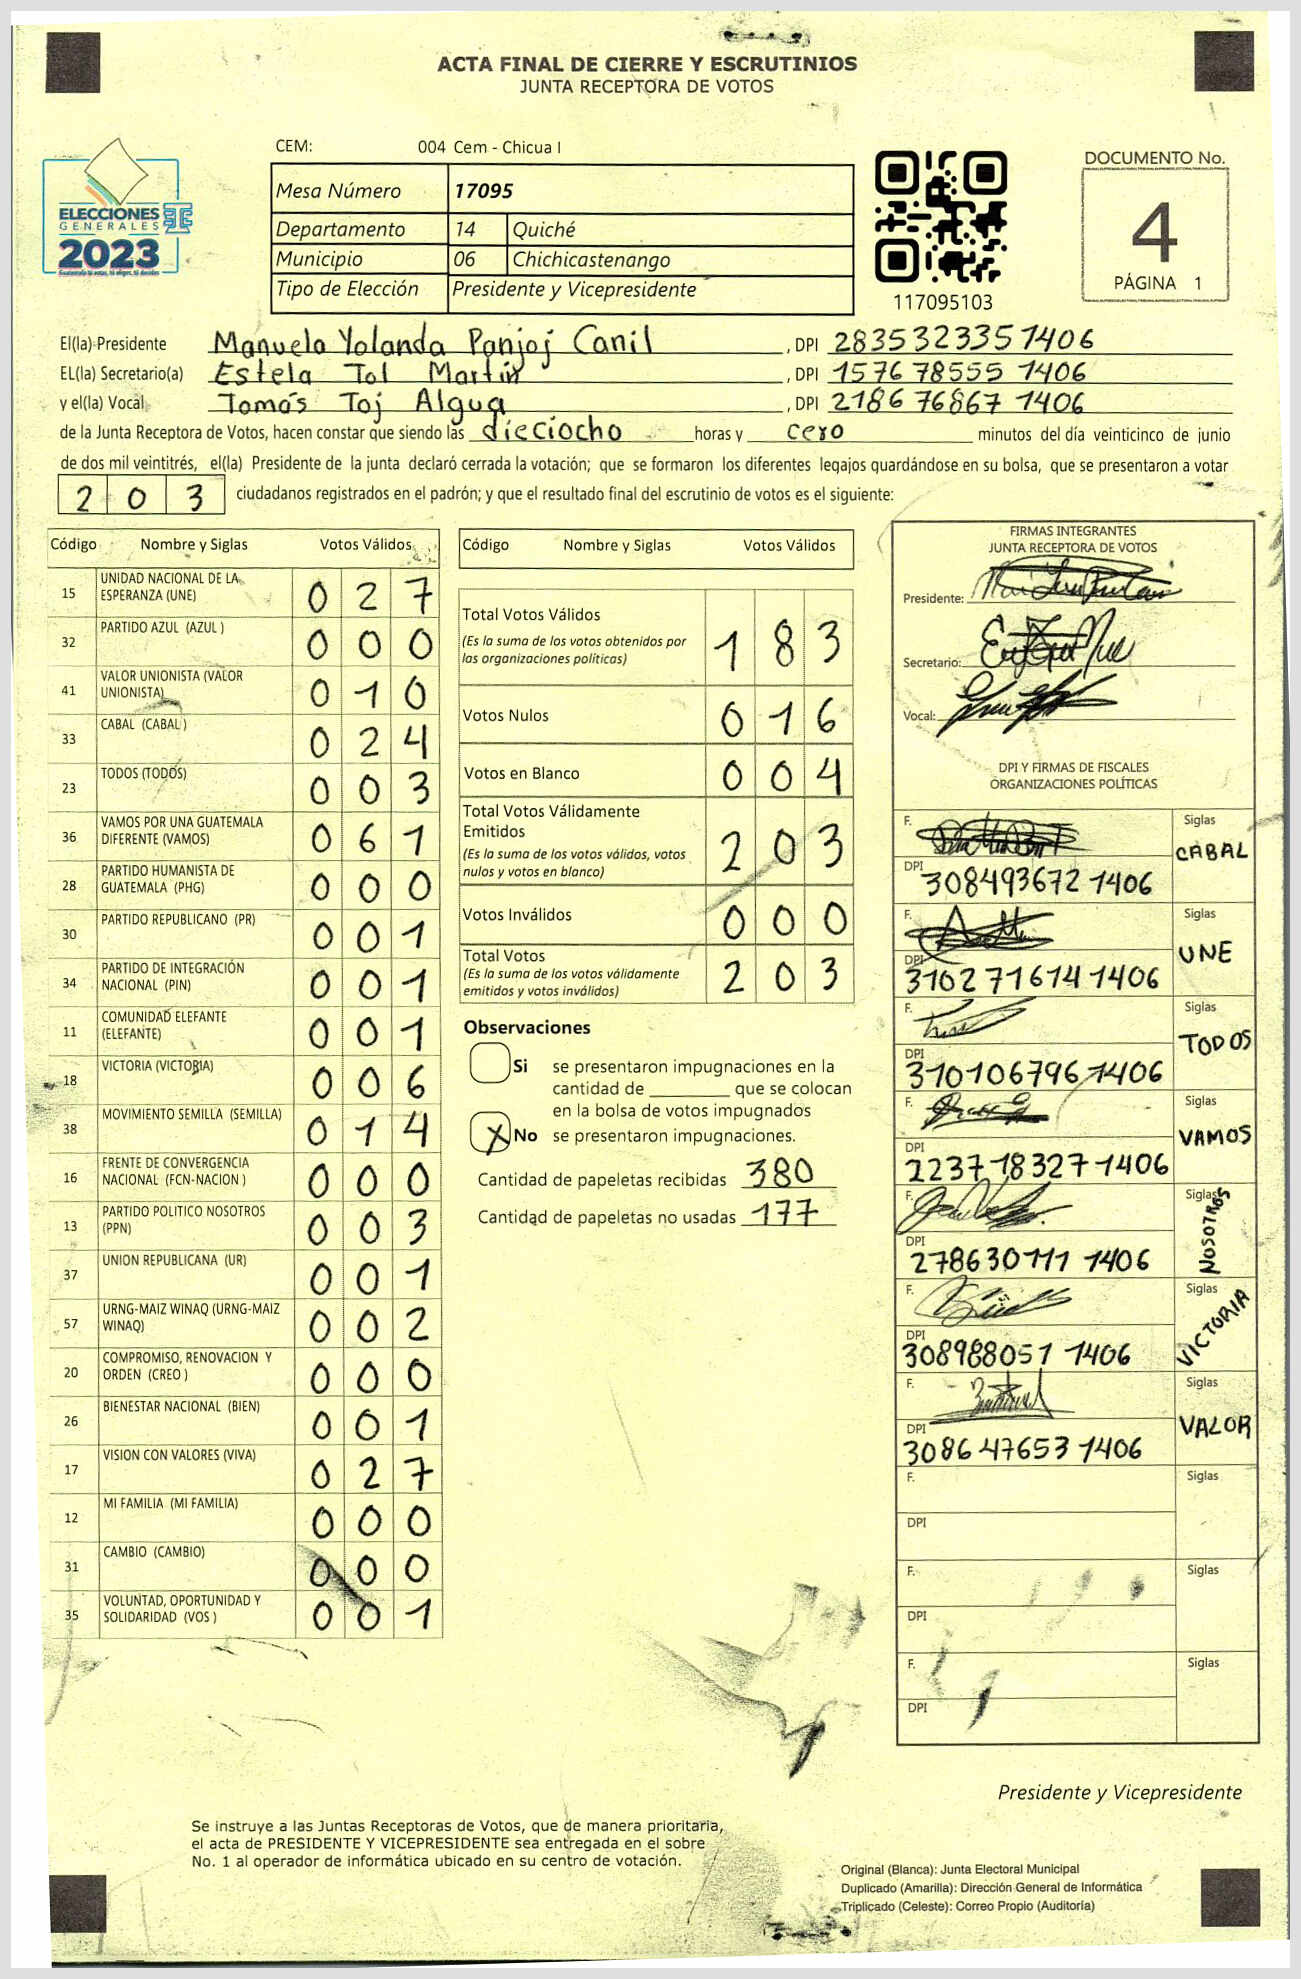 ACTA FINAL DE CIERRE Y ESCRUTINIOS
JUNTA RECEPTORA DE VOTOS
ELECCIONES
GENERALES
2023
CEM: 004 Cem - Chicua I
Mesa Número 17095
Departamento 14 Quiché
Municipio 06 Chichicastenango
Tipo de Elección Presidente y Vicepresidente
117095103
DOCUMENTO No.
4
PÁGINA 1
El(la) Presidente Manuela Yolanda Panjoj Canil, DPI 283532335 1406
EL(la) Secretario(a) Estela Tol Martín, DPI 1576 78555 1406
y el(la) Vocal Tomás Toj Algua, DPI 2186 76867 1406
de la Junta Receptora de Votos, hacen constar que siendo las dieciocho horas y cero minutos del día veinticinco de junio
de dos mil veintitrés, el(la) Presidente de la junta declaró cerrada la votación; que se formaron los diferentes legajos guardándose en su bolsa, que se presentaron a votar
203 ciudadanos registrados en el padrón; y que el resultado final del escrutinio de votos es el siguiente:
Código Nombre y Siglas Votos Válidos
15 UNIDAD NACIONAL DE LA ESPERANZA (UNE) 027
32 PARTIDO AZUL (AZUL ) 000
41 VALOR UNIONISTA (VALOR UNIONISTA) 010
33 CABAL (CABAL ) 024
23 TODOS (TODOS) 003
36 VAMOS POR UNA GUATEMALA DIFERENTE (VAMOS) 061
28 PARTIDO HUMANISTA DE GUATEMALA (PHG) 000
30 PARTIDO REPUBLICANO (PR) 001
34 PARTIDO DE INTEGRACIÓN NACIONAL (PIN) 001
11 COMUNIDAD ELEFANTE (ELEFANTE) 001
18 VICTORIA (VICTORIA) 006
38 MOVIMIENTO SEMILLA (SEMILLA) 014
16 FRENTE DE CONVERGENCIA NACIONAL (FCN-NACION ) 000
13 PARTIDO POLITICO NOSOTROS (PPN) 003
37 UNION REPUBLICANA (UR) 001
57 URNG-MAIZ WINAQ (URNG-MAIZ WINAQ) 002
20 COMPROMISO, RENOVACION Y ORDEN (CREO ) 000
26 BIENESTAR NACIONAL (BIEN) 001
17 VISION CON VALORES (VIVA) 027
12 MI FAMILIA (MI FAMILIA) 000
31 CAMBIO (CAMBIO) 000
35 VOLUNTAD, OPORTUNIDAD Y SOLIDARIDAD (VOS ) 001
Código Nombre y Siglas Votos Válidos
Total Votos Válidos 183
(Es la suma de los votos obtenidos por
las organizaciones políticas)
Votos Nulos 016
Votos en Blanco 004
Total Votos Válidamente
Emitidos 203
(Es la suma de los votos válidos, votos
nulos y votos en blanco)
Votos Inválidos 000
Total Votos 203
(Es la suma de los votos válidamente
emitidos y votos inválidos)
Observaciones
Si se presentaron impugnaciones en la
cantidad de ________ que se colocan
en la bolsa de votos impugnados
X No se presentaron impugnaciones.
Cantidad de papeletas recibidas 380
Cantidad de papeletas no usadas 177
FIRMAS INTEGRANTES
JUNTA RECEPTORA DE VOTOS
Presidente:
Secretario:
Vocal:
DPI Y FIRMAS DE FISCALES
ORGANIZACIONES POLÍTICAS
F. Siglas CABAL
DPI 308493672 1406
F. Siglas UNE
DPI 3102 71614 1406
F. Siglas TODOS
DPI 310106796 1406
F. Siglas VAMOS
DPI 2237 18327 1406
F. Siglas NOSOTROS
DPI 278630111 1406
F. Siglas VICTORIA
DPI 308988051 1406
F. Siglas VALOR
DPI 3086 47653 1406
F. Siglas
DPI
F. Siglas
DPI
F. Siglas
DPI
Presidente y Vicepresidente
Se instruye a las Juntas Receptoras de Votos, que de manera prioritaria,
el acta de PRESIDENTE Y VICEPRESIDENTE sea entregada en el sobre
No. 1 al operador de informática ubicado en su centro de votación.
Original (Blanca): Junta Electoral Municipal
Duplicado (Amarilla): Dirección General de Informática
Triplicado (Celeste): Correo Propio (Auditoría)